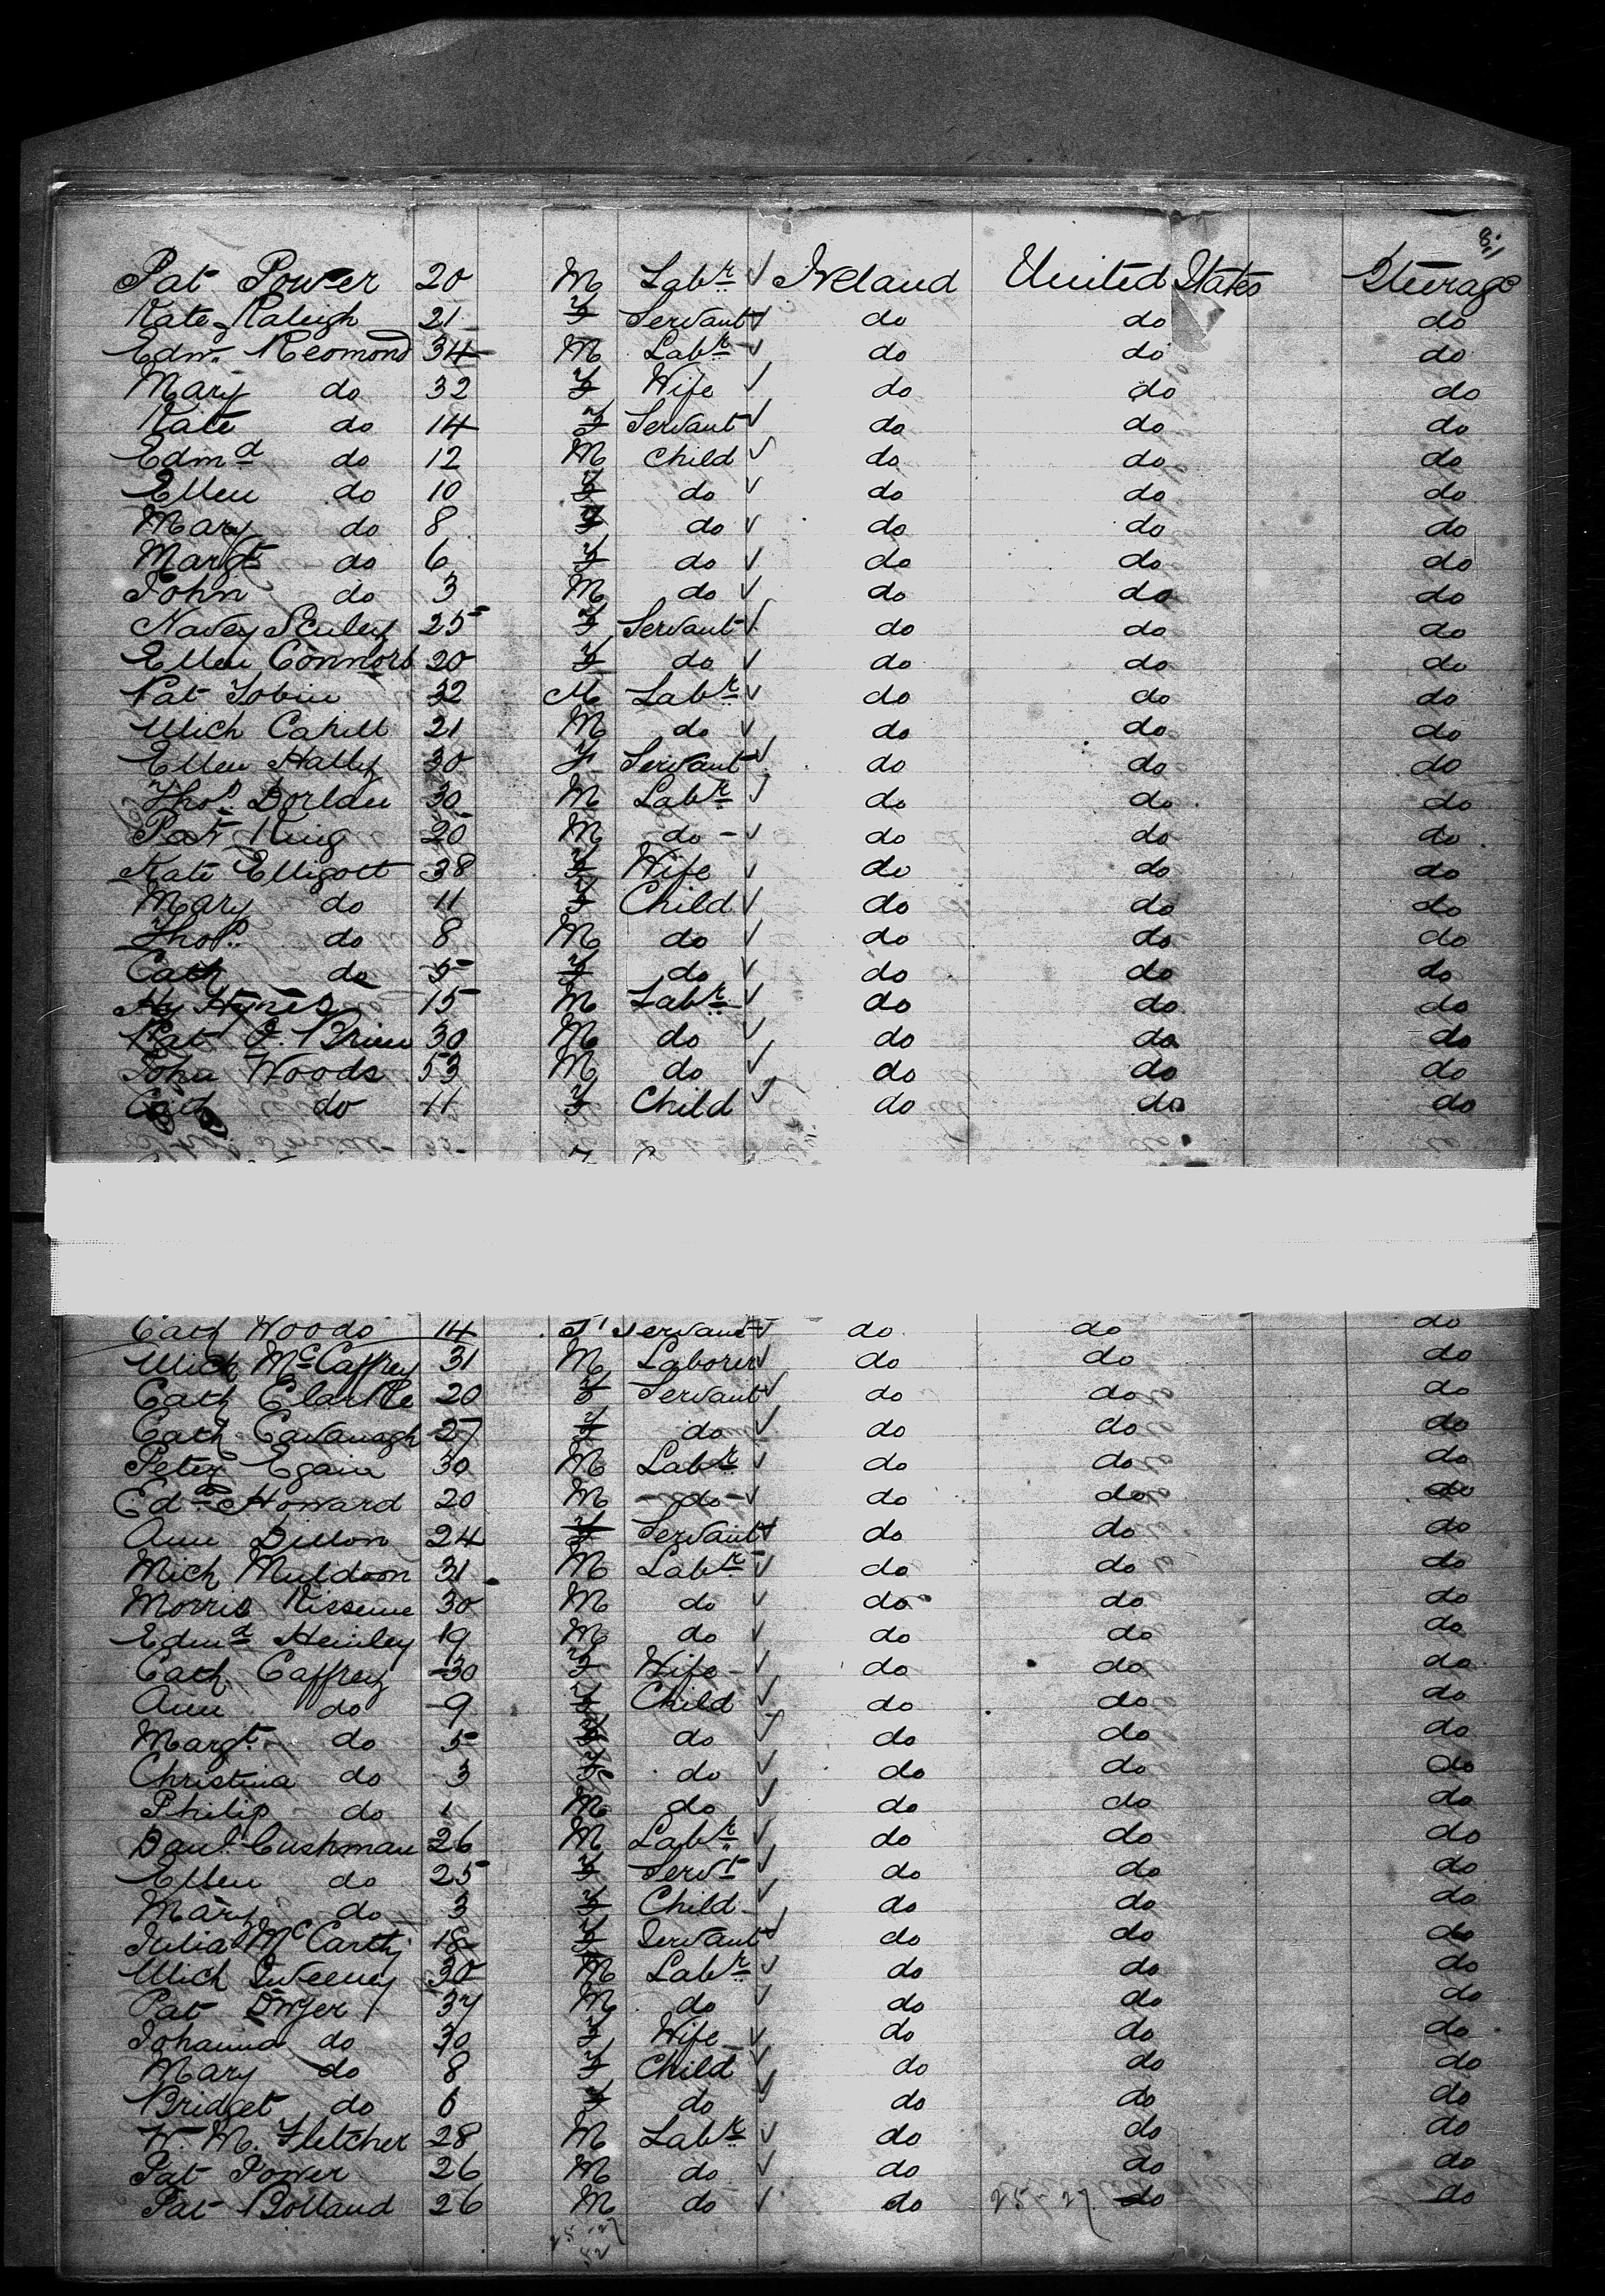 8.
Pat Power 20 M Labr Ireland United States Steerage
Kate Raleigh 21 F Servant do do do
Edw. Redmond 34 M Labr do do do
Mary do 32 F Wife do do do
Kate do 14 F Servant do do do
Edmd do 12 M Child do do do
Ellen do 10 F do do do do
Mary do 8 F do do do do
Margt do 6 F do do do do
John do 3 M do do do do
25 F Servant do do do
Ellen Connors 20 F do do do do
Pat Tobin 32 M Labr do do do
Mich Cahill 21 M do do do do
Ellen Hally 30 F Servant do do do
Thos. 30 M Labr do do do
Pat King 20 M do do do do
Kate Elligott 38 F Wife do do do
Mary do 11 F Child do do do
Thos. do 8 M do do do do
Cath do 5 F do do do do
Hy Hynes 15 M Labr do do do
Pat O. Brien 30 M do do do do
John Woods 53 M do do do do
do 11 F Child do do do
Cath Woods 14 F Servant do do do
Mich McCaffrey 31 M Laborer do do do
Cath Clarke 20 F Servant do do do
Cath Cavanagh 27 F do do do do
Peter Egan 30 M Labr do do do
Edwd Howard 20 M do do do do
Ann Dillon 24 F Servant do do do
Mich Muldoon 31 M Labr do do do
Morris 30 M do do do do
Edmd 19 M do do do do
Cath Caffrey 30 F Wife do do do
Ann do 9 F Child do do do
Margt do 5 F do do do do
Christina do 3 F do do do do
Philip do 1 M do do do do
Danl. Cushman 26 M Labr do do do
Ellen do 25 F Servt do do do
Mary do 3 F Child do do do
Julia McCarthy 18 F Servant do do do
Mich Sweeney 30 M Labr do do do
Pat Dwyer 37 M do do do do
Johanna do 30 F Wife do do do
Mary do 8 F Child do do do
Bridget do 6 F do do do do
W. M. Fletcher 28 M Labr do do do
Pat Power 26 M do do do do
Pat Bolland 26 M do do 25-27 do do
25-27
52